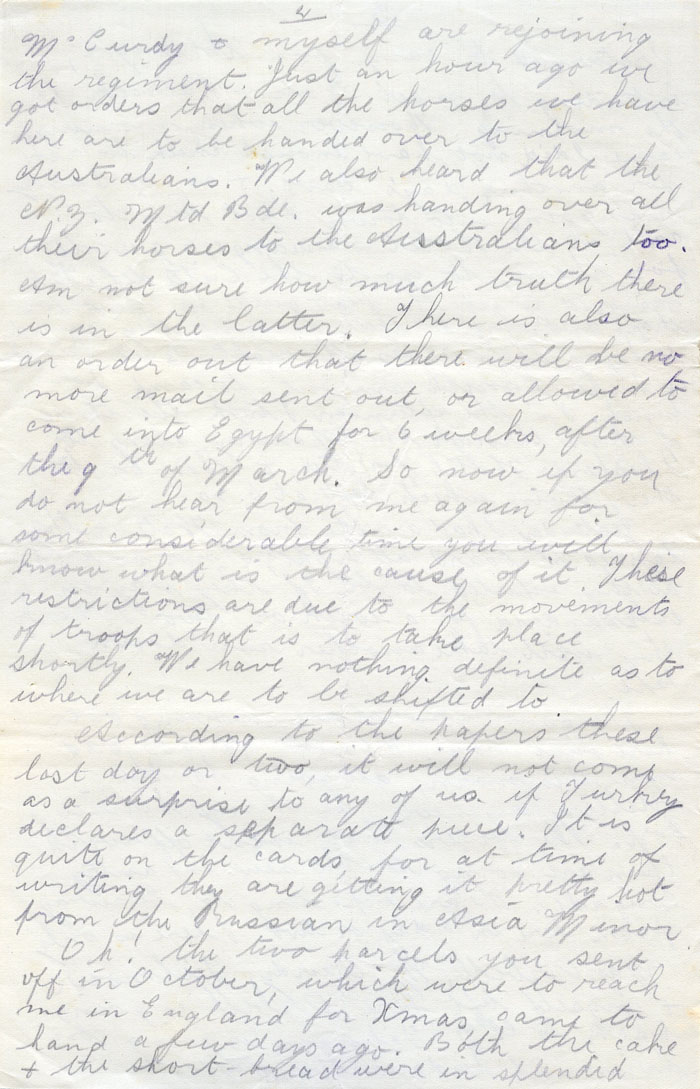 4
McCurdy & myself are rejoining
the regiment. Just an hour ago we
got orders that all the horses we have
here are to be handed over to the
Australians. We also heard that the
N.Z. Mtd Bde. was handing over all
their horses to the Australians too.
Am not sure how much truth there
is in the latter. There is also
an order out that there will be no
more mail sent out, or allowed to
come into Egypt for 6 weeks, after
the 9th of March. So now if you
do not hear from me again for
some considerable time you will
know what is the cause of it. These
restrictions are due to the movements
of troops that is to take place
shortly. We have nothing definite as to
where we are to be shifted to
According to the papers these
last day or two, it will not come
as a surprise to any of us. if Turkey
declares a separate piece. It is
quite on the cards, for at time of
writing they are getting it pretty hot
from the Russian in Asia Minor.
Oh! the two parcels you sent
off in October, which were to reach
me in England for Xmas, came to
hand a few days ago. Both the cake
& the short-bread were in splended